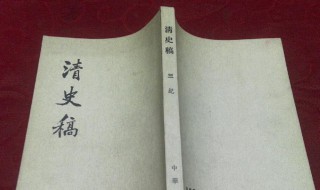 清史稿
清史稿
本紀
中華